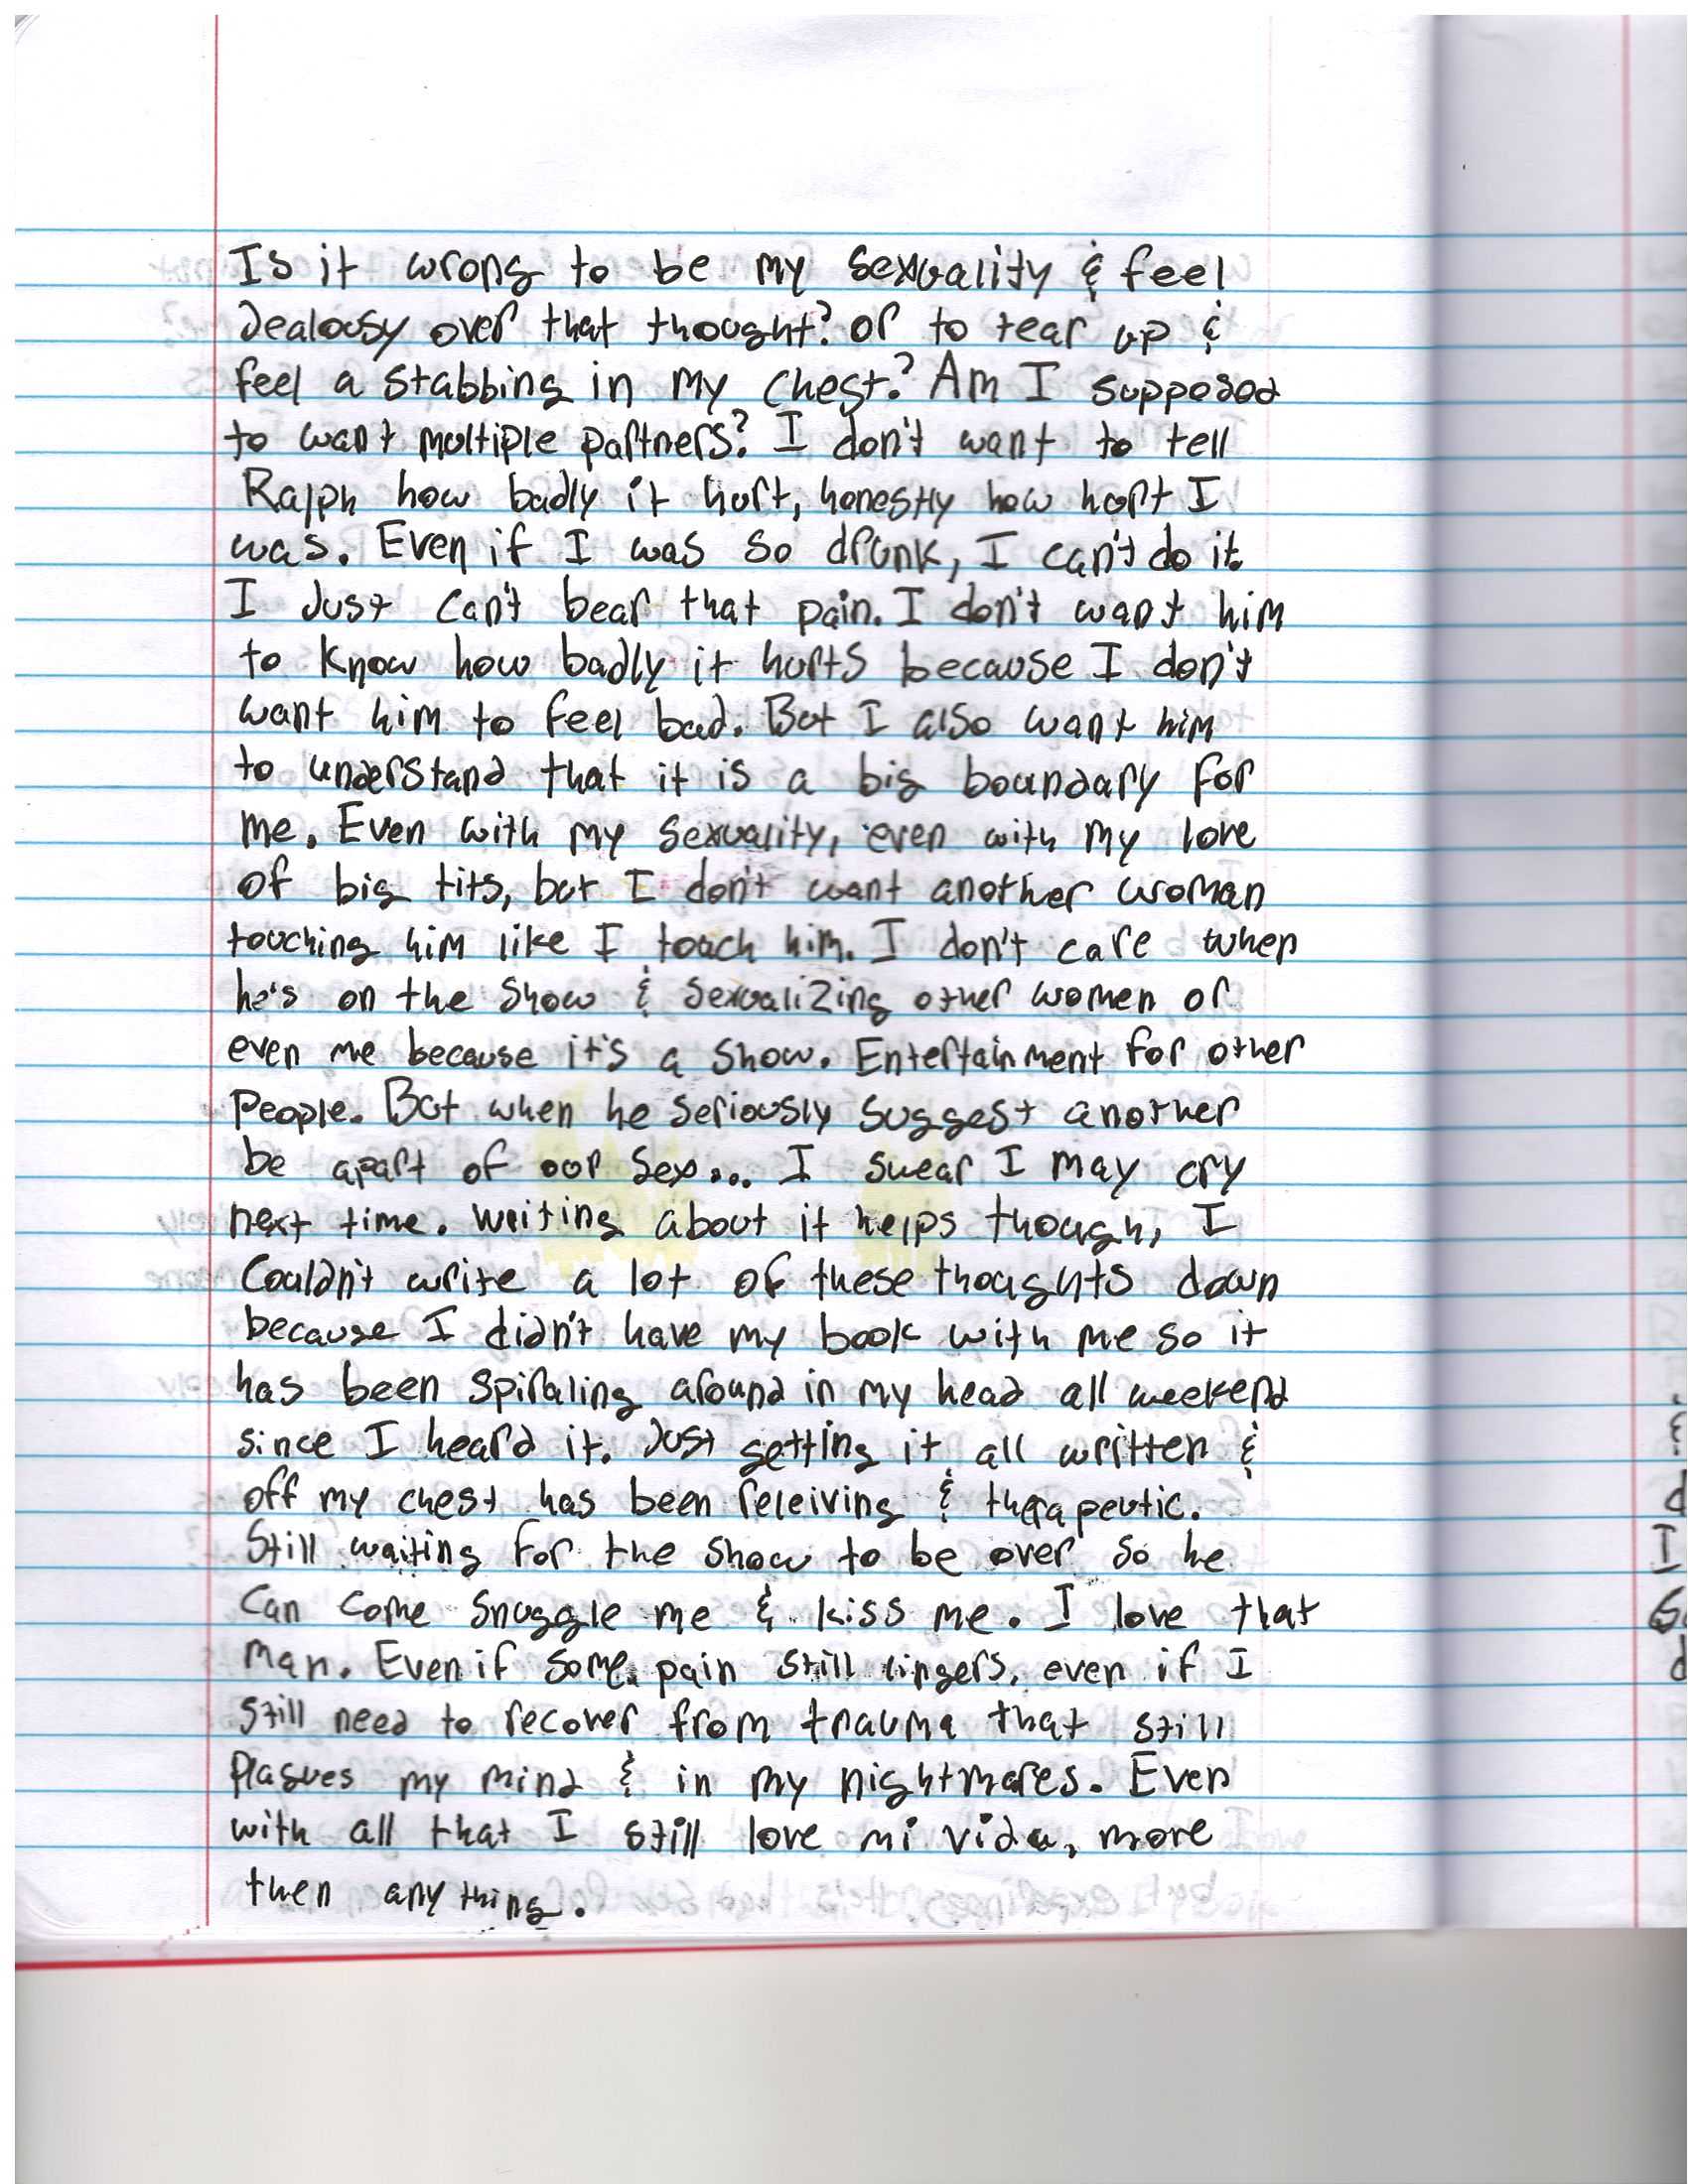 Is it wrong to be my sexuality & feel
Jealousy over that thought? or to tear up &
feel a stabbing in my chest? Am I supposed
to want multiple partners? I don't want to tell
Ralph how badly it hurt, honestly how hurt I
was. Even if I was so drunk, I can't do it.
I Just can't bear that pain. I don't want him
to know how badly it hurts because I don't
want him to feel bad. But I also want him
to understand that it is a big boundary for
me. Even with my sexuality, even with my love
of big tits, but I don't want another woman
touching him like I touch him. I don't care when
he's on the show & sexualizing other women or
even me because it's a show. Entertainment for other
People. But when he seriously suggest another
be apart of our sex... I swear I may cry
next time. Writing about it helps though, I
Couldn't write a lot of these thoughts down
because I didn't have my book with me so it
has been spiraling around in my head all weekend
since I heard it. Just getting it all written &
off my chest has been releiving & therapeutic.
Still waiting for the show to be over so he
Can come snuggle me & kiss me. I love that
Man. Even if some pain still lingers, even if I
still need to recover from trauma that still
Plagues my mind & in my nightmares. Even
with all that I still love mi vida, more
then anything.